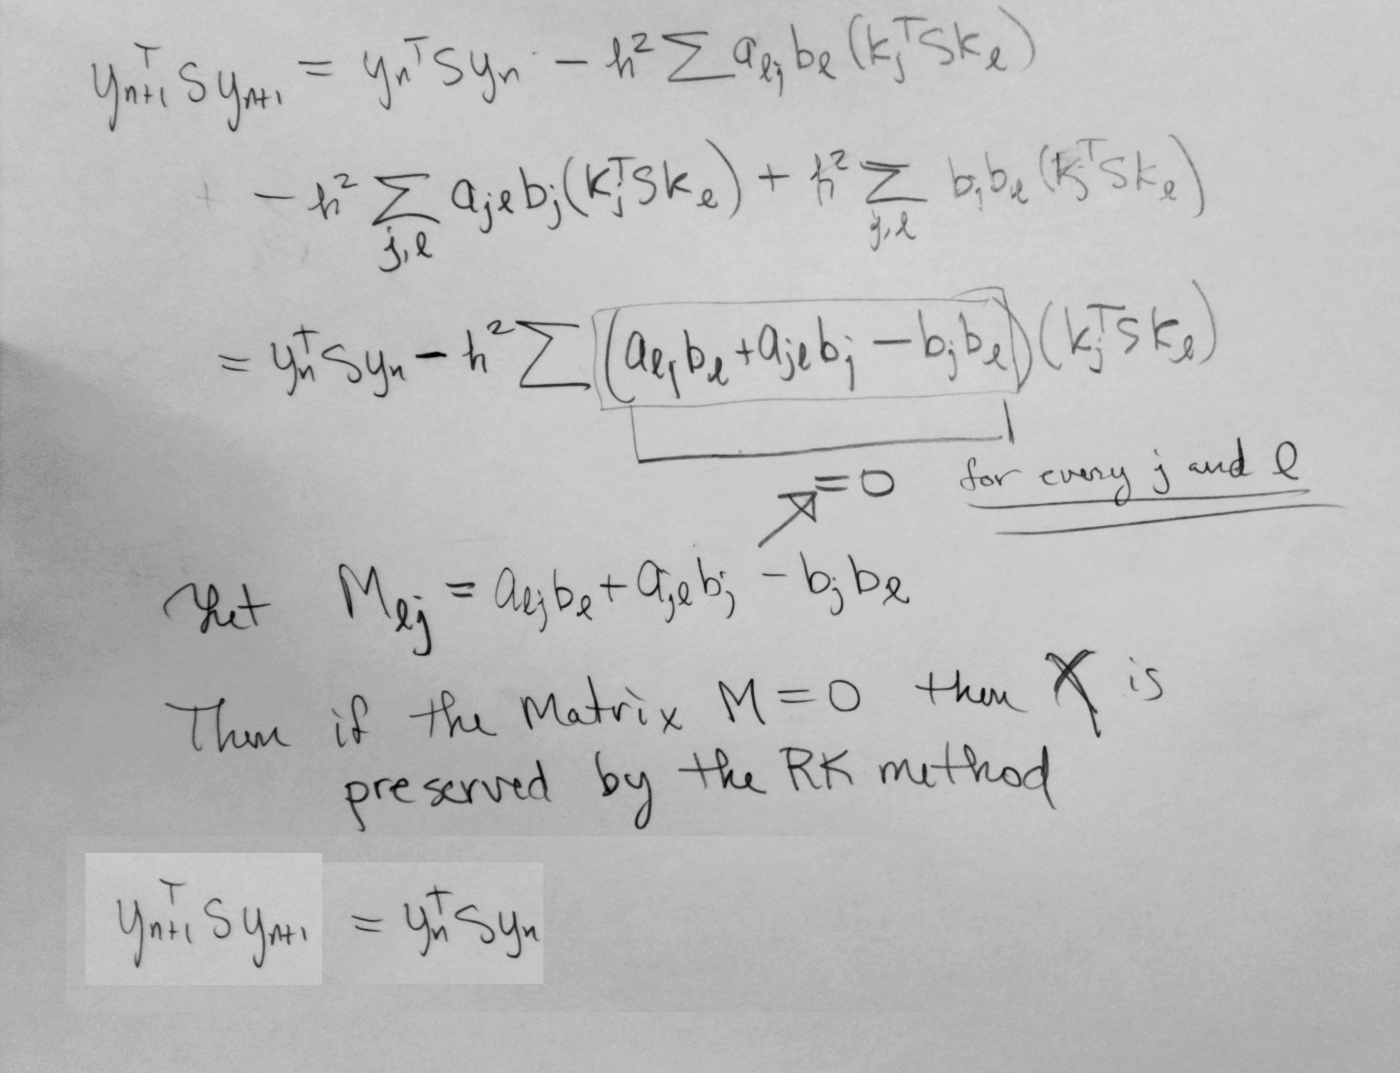 yₙ₊₁ᵀ S yₙ₊₁ = yₙᵀ S yₙ − h² ∑ aₗⱼ bₗ (kⱼᵀ S kₗ)
− h² ∑_{j,l} aⱼₗ bⱼ (kⱼᵀ S kₗ) + h² ∑_{j,l} bⱼ bₗ (kⱼᵀ S kₗ)
= yₙᵀ S yₙ − h² ∑ (aₗⱼ bₗ + aⱼₗ bⱼ − bⱼ bₗ) (kⱼᵀ S kₗ)
= 0 for every j and l
Let Mₗⱼ = aₗⱼ bₗ + aⱼₗ bⱼ − bⱼ bₗ
Then if the Matrix M = 0 then is
preserved by the RK method
yₙ₊₁ᵀ S yₙ₊₁ = yₙᵀ S yₙ